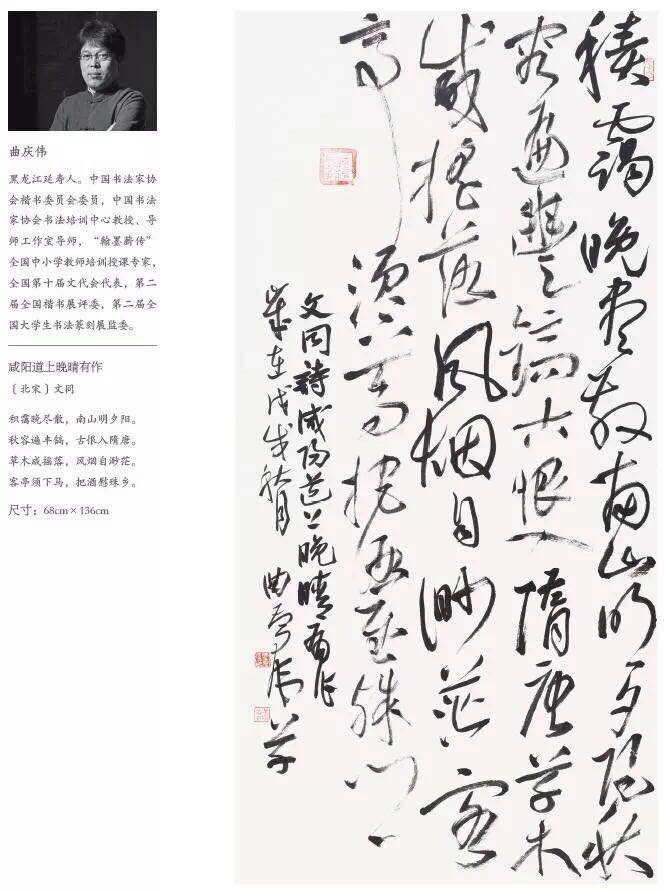 曲庆伟
黑龙江延寿人。中国书法家协
会楷书委员会委员，中国书法
家协会书法培训中心教授、导
师工作室导师，“翰墨薪传”
全国中小学教师培训授课专家，
全国第十届文代会代表，第二
届全国楷书展评委，第二届全
国大学生书法篆刻展监委。
咸阳道上晚晴有作
〔北宋〕文同
积霭晚尽散，南山明夕阳。
秋容遍丰镐，古恨入隋唐。
草木咸摇落，风烟自渺茫。
客亭须下马，把酒慰殊乡。
尺寸：68cm×136cm
積靄晚盡散南山明夕陽秋
容遍豐鎬古恨入隋唐草木
咸搖落風烟自渺茫客
亭須下馬把酒慰殊鄉
文同詩咸陽道上晚晴有作
歲在戊戌秋月曲慶偉草